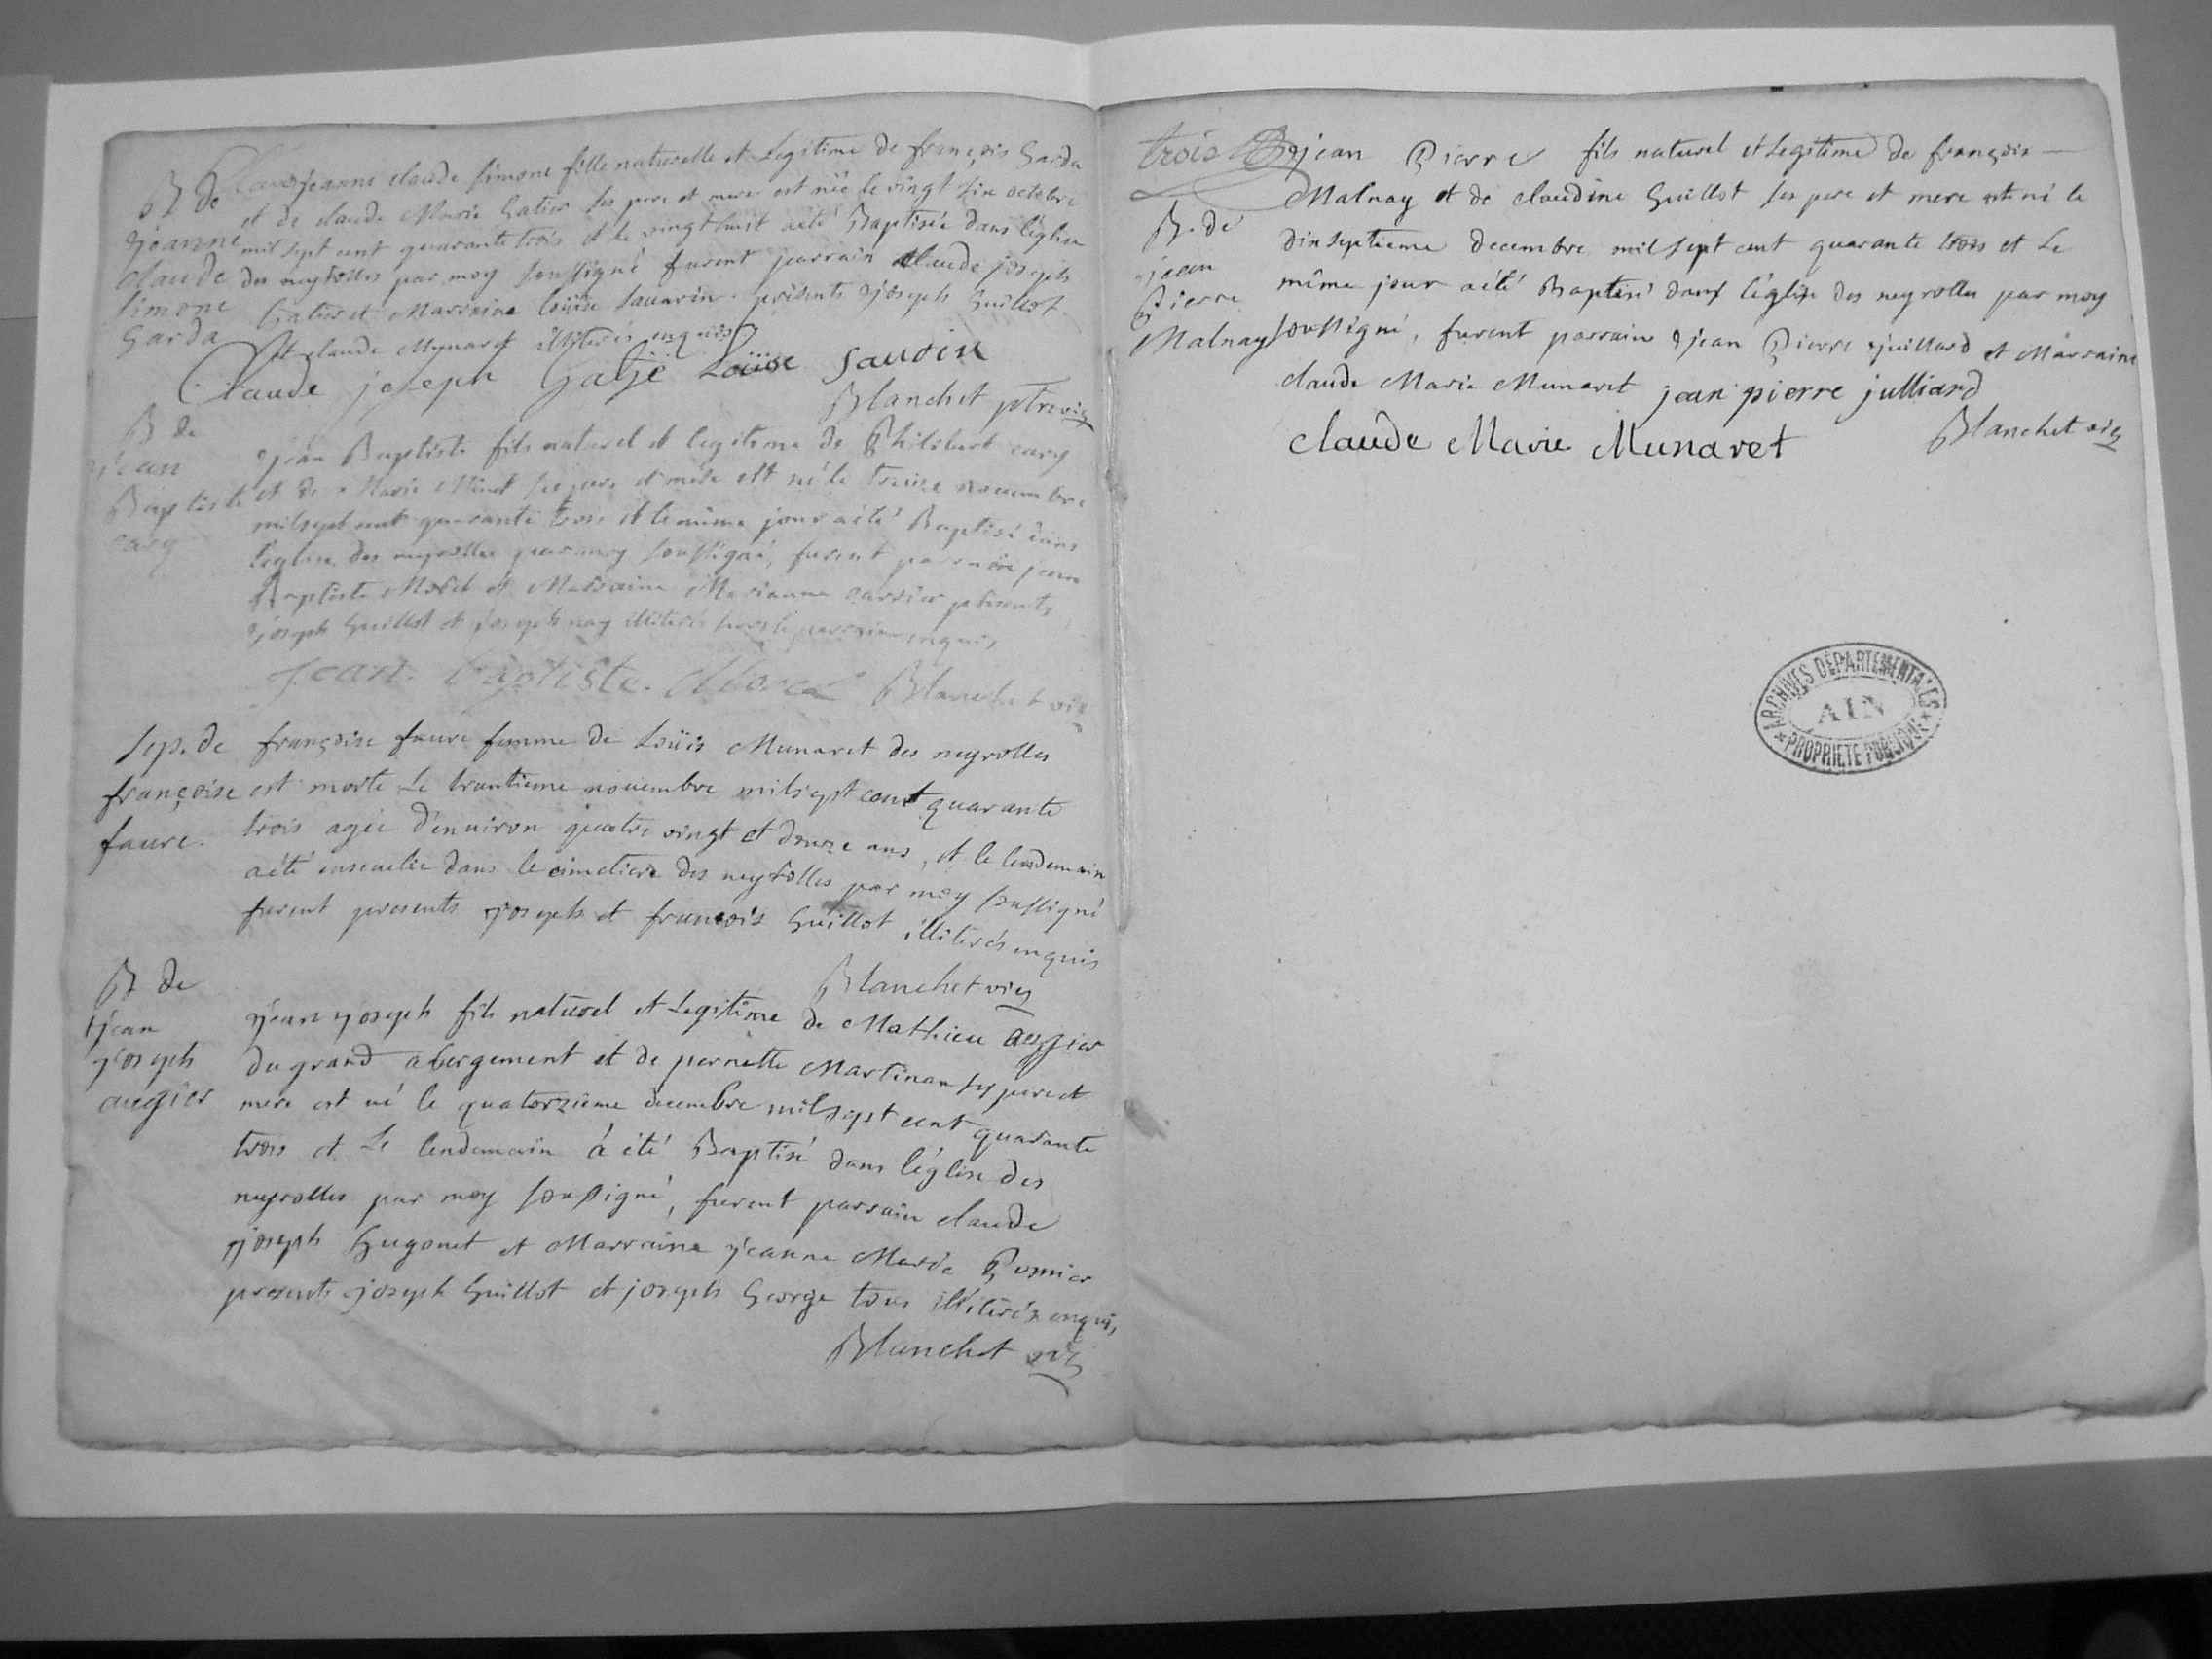 B de
jeanne
claude
simone
Garda
jeanne claude simone fille naturelle et Legitime de françois Garda
et de claude Marie Gatier ses pere et mere est née le vingt six octobre
mil sept cent quarante trois et le vingt huit a été Baptisée dans l'église
des neyrolles par moy soussigné furent parrain claude joseph
Gatier et Marraine Louise sauarin presents joseph Guillot
et claude Munaret illiterés enquis
Claude joseph Gatje Loüise sauoin
Blanchet ptre vic
B de
jean
Baptiste
cary
jean Baptiste fils naturel et legitime de Philibert cary
et de Marie Minet ses pere et mere est né le treize nouembre
mil sept cent quarante trois et le même jour a été Baptisé dans
l'église des neyrolles par moy soussigné, furent parrain jean
Baptiste Morel et Marraine Marianne carrier présents
joseph Guillot et joseph nay illiterés hors le parrain enquis
jean. baptiste. Blanchet vic
sep. de
françoise
faure.
françoise faure femme de Loüis Munaret des neyrolles
est morte Le trantieme nouembre mil sept cent quarante
trois agée d'enuiron quatre vingt et douze ans, et le lendemain
a été enseuelie dans le cimetiere des neyrolles par moy soussigné
furent presents joseph et françois Guillot illiterés enquis
Blanchet vic
B de
jean
joseph
augier
jean joseph fils naturel et Legitime de Mathieu augier
du grand abergement et de pernette Martinan ses pere et
mere est né le quatorzieme decembre mil sept cent quarante
trois et Le lendemain à été Baptisé dans l'église des
neyrolles par moy soussigné, furent parrain claude
joseph Hugonet et Marraine jeanne Marie
presents joseph Guillot et joseph George tous illiterés enquis
Blanchet vic
trois
B. de
jean
Pierre
Malnay
jean Pierre fils naturel et Legitime de françois
Malnay et de claudine Guillot ses pere et mere est né le
dixseptieme decembre mil sept cent quarante trois et Le
même jour a été Baptisé dans l'église des neyrolles par moy
soussigné, furent parrain jean Pierre juillard et Marraine
claude Marie Munaret jean pierre julliard
claude Marie Munaret Blanchet vic
ARCHIVES DÉPARTEMENTALES
AIN
PROPRIÉTÉ PUBLIQUE